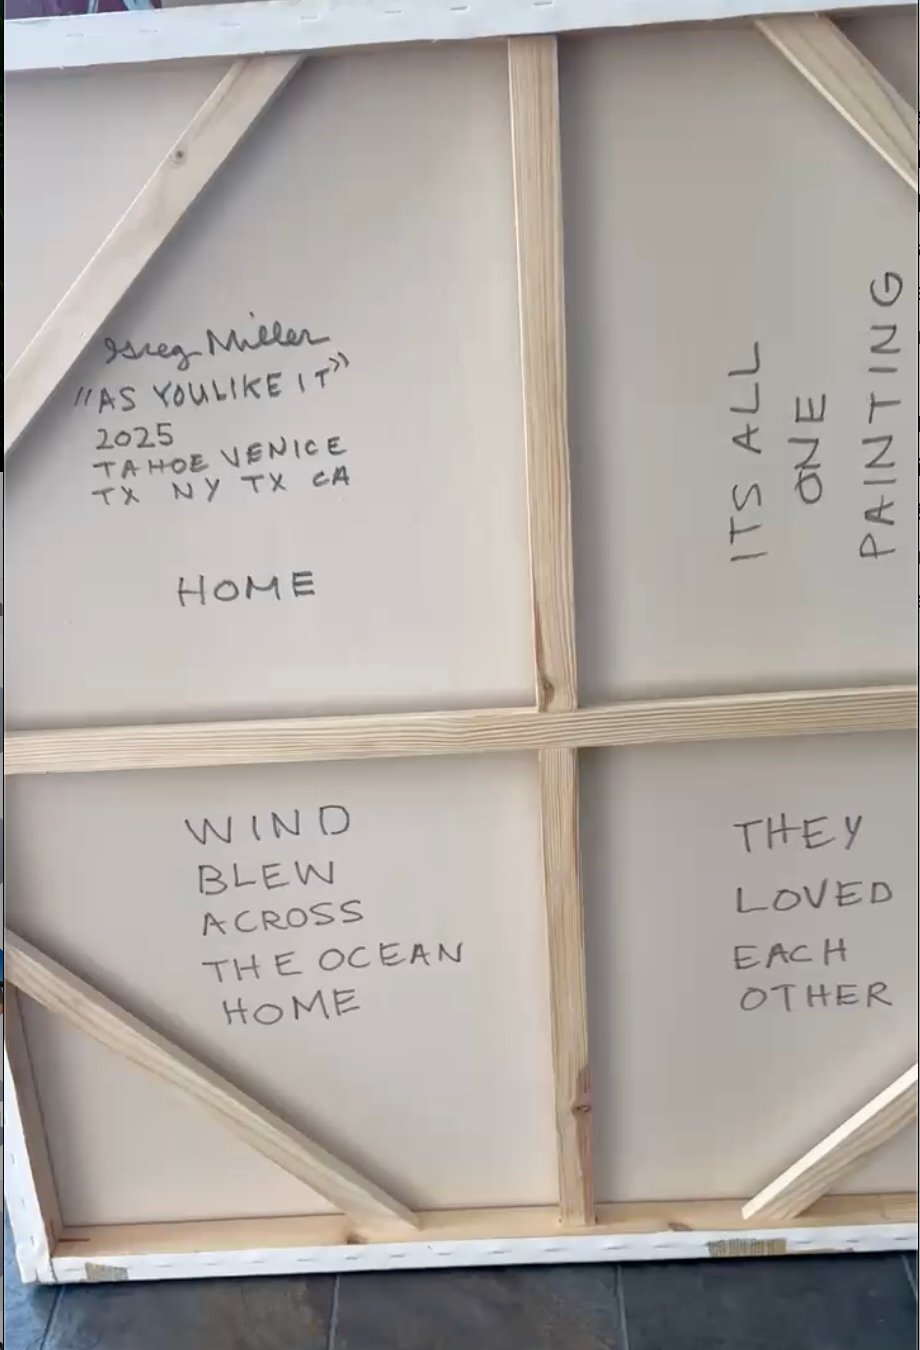 Greg Miller
"AS YOU LIKE IT"
2025
TAHOE VENICE
TX NY TX CA
HOME
ITS ALL
ONE
PAINTING
WIND
BLEW
ACROSS
THE OCEAN
HOME
THEY
LOVED
EACH
OTHER